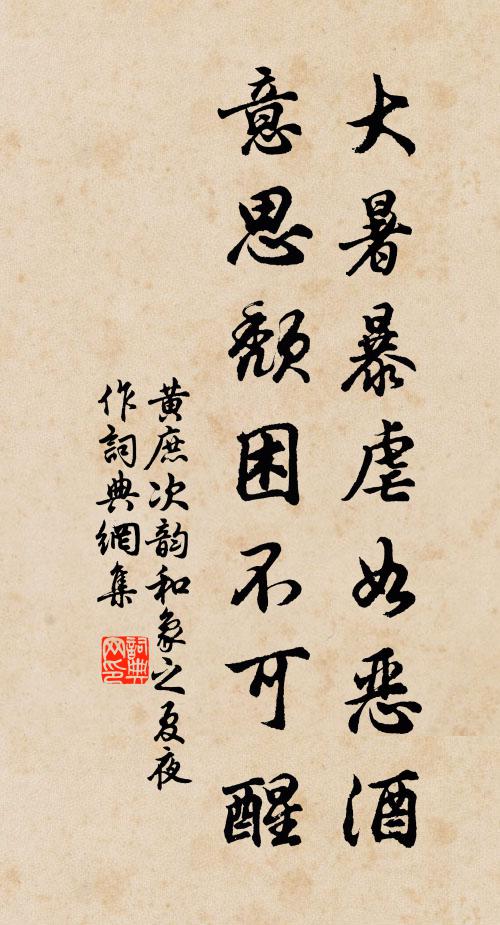 大暑暴虐如恶酒
意思颓困不可醒
黄庶次韵和象之夏夜
作詞典網集
詞典
网印